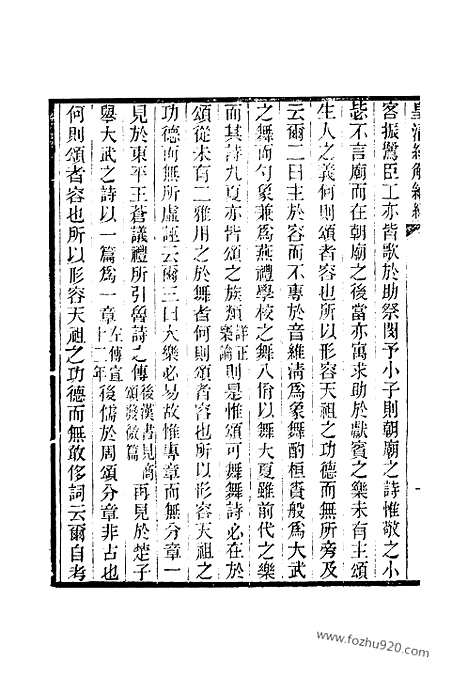 皇清經解續編
客振鷺臣工亦皆歌於助祭閔予小子則朝廟之詩惟敬之小
毖不言廟而在朝廟之後當亦寓求助於獻賓之樂未有主頌
生人之義何則頌者容也所以形容天祖之功德而無所旁及
云爾二曰主於容而不專於音維淸爲象舞酌桓賚般爲大武
之舞而勺象兼爲燕禮學校之舞八佾以舞大夏雖前代之樂
而其詩九夏亦皆頌之族類詳正樂論則是惟頌可舞舞詩必在於
頌從未有二雅用之於舞者何則頌者容也所以形容天祖之
功德而無所虛誣云爾三曰大樂必易故惟專章而無分章一
見於東平王蒼議禮所引魯詩之傳後漢書見商頌發微篇再見於楚子
舉大武之詩以一篇爲一章左傳宣十二年後儒於周頌分章非古也
何則頌者容也所以形容天祖之功德而無敢侈詞云爾自考
www.fozhu920.com